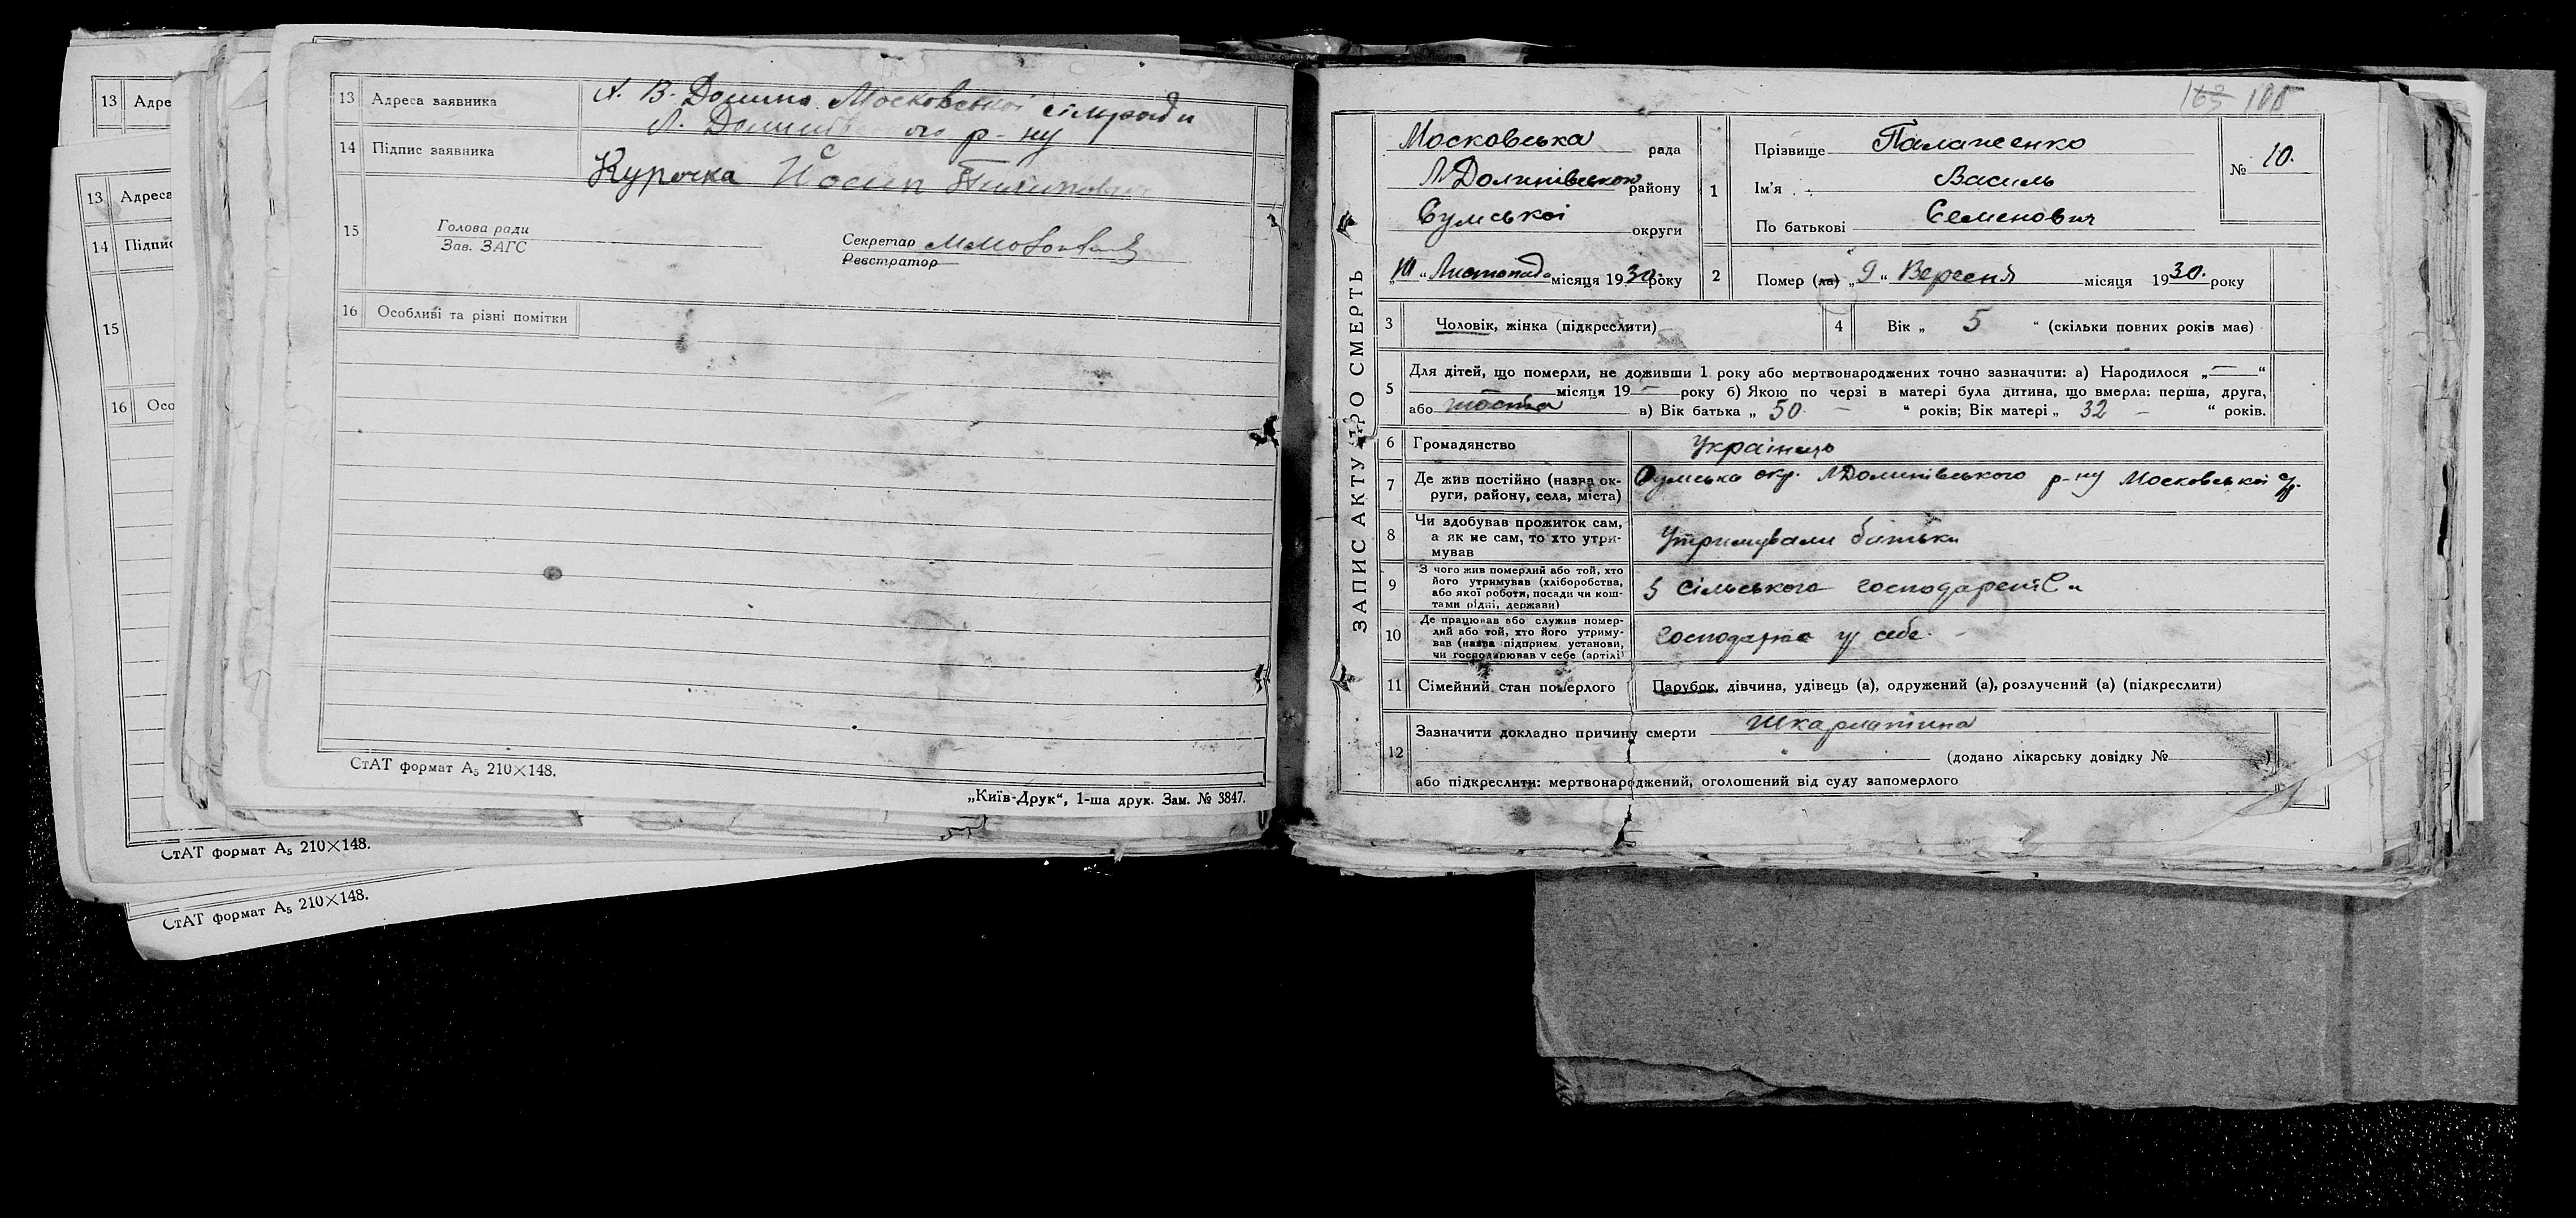 13 Адре
13 Адреса
14 Підпис
15
16 Осо
СтАТ формат А₅ 210×148.
СтАТ формат А₅ 210×148.
13 Адреса заявника Х. В. Долина Московської сільради
Л. р-ну
14 Підпис заявника Курочка Йосип
15 Голова ради
Зав. ЗАГС
Секретар
Реєстратор
16 Особливі та різні помітки
СтАТ формат А₅ 210×148.
„Київ-Друк“, 1-ша друк. Зам. № 3847.
100
ЗАПИС АКТУ ПРО СМЕРТЬ
Московська рада
Л Долинівського району
Сумської округи
„10“ Листопада місяця 1930 року
1 Прізвище Паламаренко
Ім'я Василь
По батькові Семенович
№ 10.
2 Помер (ла) „9“ Вересня місяця 1930. року
3 Чоловік, жінка (підкреслити)
4 Вік „ 5 “ (скільки повних років має)
5 Для дітей, що померли, не доживши 1 року або мертвонароджених точно зазначити: а) Народилося „—“
місяця 19 — року б) Якою по черзі в матері була дитина, що вмерла: перша, друга,
або шоста в) Вік батька „ 50 – “ років; Вік матері „ 32 – “ років.
6 Громадянство Українець
7 Де жив постійно (назва округи, району, села, міста) Сумська окр. Л Долинівського р-ну Московської
8 Чи здобував прожиток сам,
а як не сам, то хто утри-
мував Утримували батьки
9 З чого жив померлий або той, хто
його утримував (хліборобства,
або якої роботи, посади чи кош-
тами рідні, держави) З сільського господарства
10 Де працював або служив помер-
лий або той, хто його утриму-
вав (назва підприєм. установи,
чи господарював у себе (артілі) господарює у себе. –
11 Сімейний стан померлого Парубок, дівчина, удівець (а), одружений (а), розлучений (а) (підкреслити)
12 Зазначити докладно причину смерти Шкарлатина
(додано лікарську довідку № )
або підкреслити: мертвонароджений, оголошений від суду за померлого